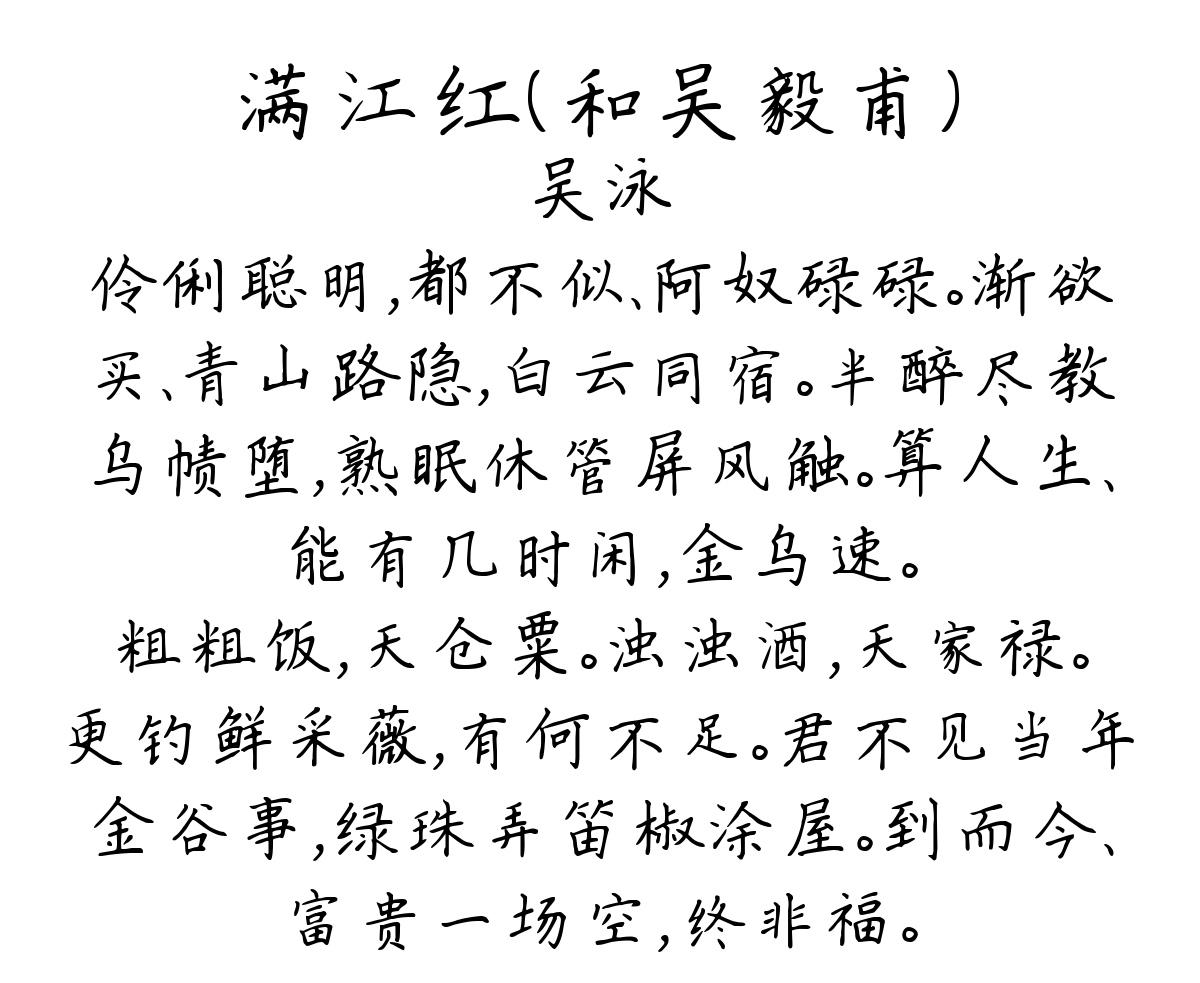 满江红(和吴毅甫)
吴泳
伶俐聪明,都不似、阿奴碌碌。渐欲
买、青山路隐,白云同宿。半醉尽教
乌帻堕,熟眠休管屏风触。算人生、
能有几时闲,金乌速。
粗粗饭,天仓粟。浊浊酒,天家禄。
更钓鲜采薇,有何不足。君不见当年
金谷事,绿珠弄笛椒涂屋。到而今、
富贵一场空,终非福。